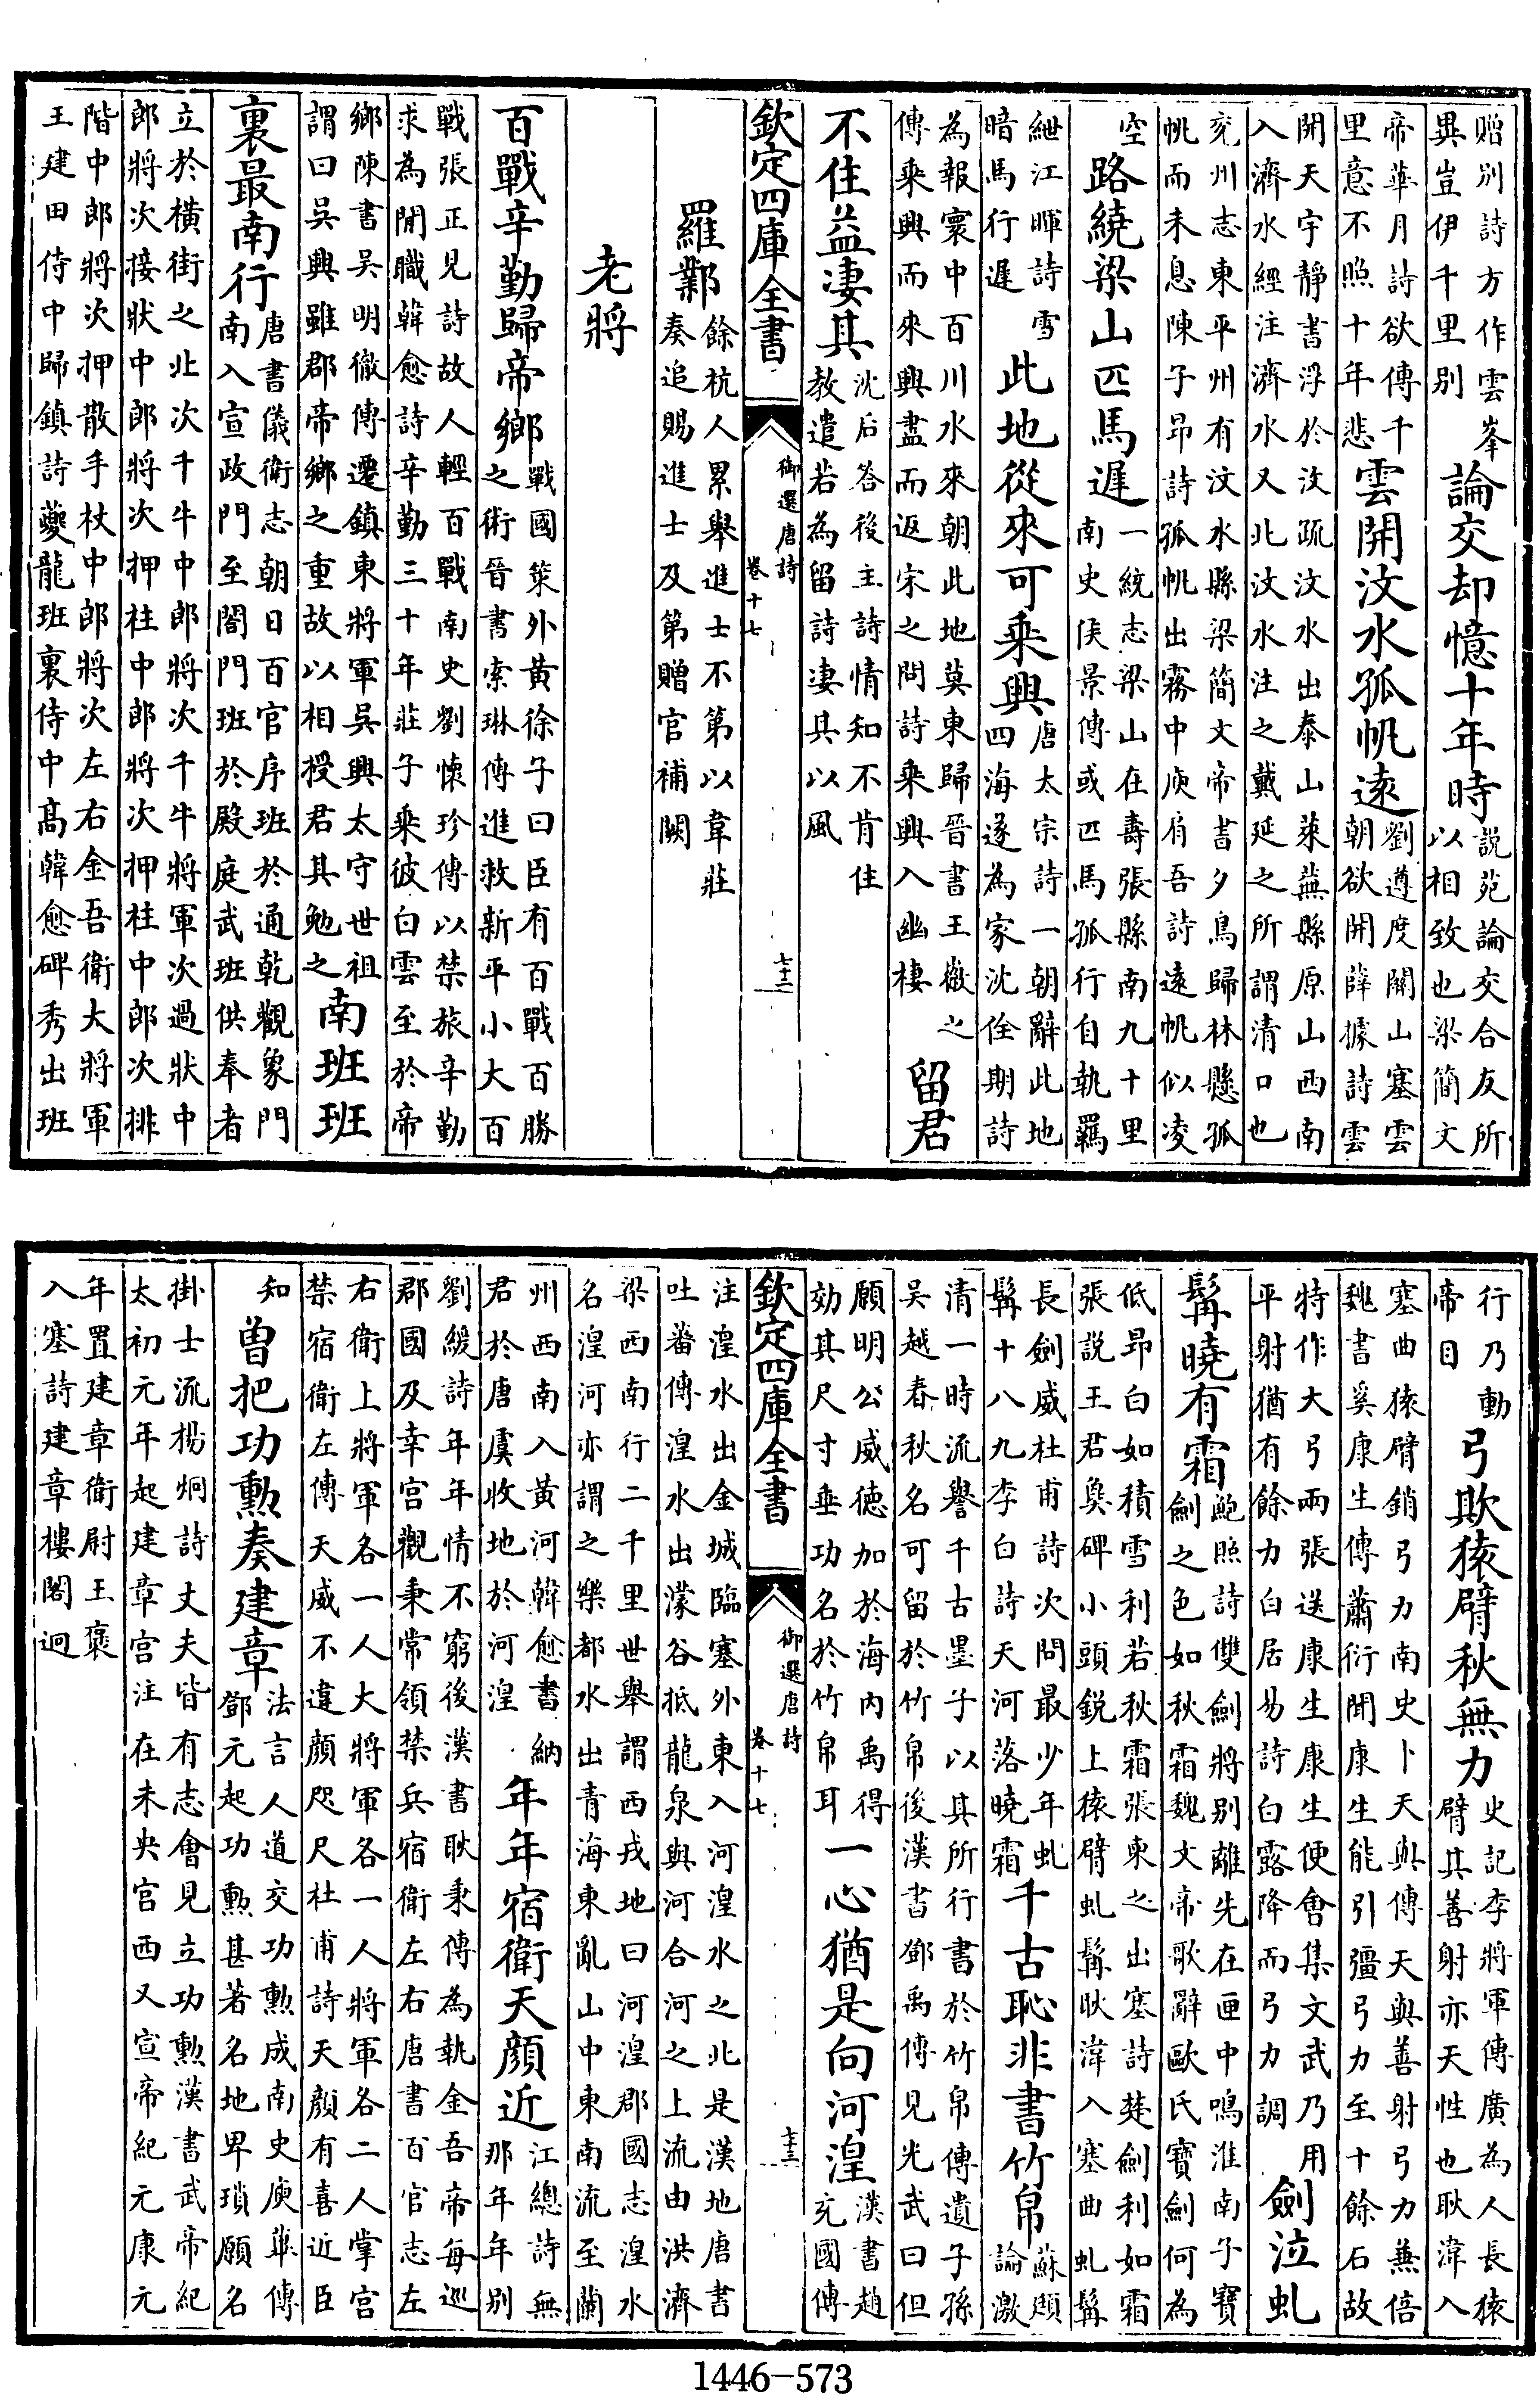 贈别詩方作雲峯
異豈伊千里别
論交却憶十年時
説苑論交合友所
以相致也梁簡文
帝華月詩欲傳千
里意不照十年悲
雲開汶水孤帆逺
劉遵度關山塞雲
朝欲開薛據詩雲
開天宇靜書浮於汶疏汶水出泰山萊蕪縣原山西南
入濟水經注濟水又北汶水注之戴延之所謂清口也
兖州志東平州有汶水縣梁簡文帝書夕鳥歸林懸孤
帆而未息陳子昂詩孤帆出霧中庾肩吾詩遠帆似凌
空
路繞梁山匹馬遲
一統志梁山在壽張縣南九十里
南史侯景傳或匹馬孤行自執羈
紲江暉詩雪
暗馬行遲
此地從來可乘興
唐太宗詩一朝辭此地
四海遂為家沈佺期詩
為報寰中百川水來朝此地莫東歸晉書王徽之
傳乘興而來興盡而返宋之問詩乘興入幽棲
留君
不住益淒其
沈后答後主詩情知不肯住
教遣若為留詩淒其以風
欽定四庫全書
御選唐詩
卷十七
七十二
羅鄴
餘杭人累舉進士不第以韋莊
奏追賜進士及第贈官補闕
老將
百戰辛勤歸帝鄉
戰國策外黄徐子曰臣有百戰百勝
之術晉書索琳傳進救新平小大百
戰張正見詩故人輕百戰南史劉懷珍傳以禁旅辛勤
求為閒職韓愈詩辛勤三十年莊子乘彼白雲至於帝
鄉陳書吳明徹傳遷鎮東將軍吳興太守世祖
謂曰吳興雖郡帝鄉之重故以相授君其勉之
南班班
裏最南行
唐書儀衛志朝日百官序班於通乾觀象門
南入宣政門至閤門班於殿庭武班供奉者
立於横街之北次千牛中郎將次千牛將軍次過狀中
郎將次接狀中郎將次押柱中郎將次押柱中郎次排
階中郎將次押散手杖中郎將次左右金吾衛大將軍
王建田侍中歸鎮詩夔龍班裏侍中髙韓愈碑秀出班
行乃動
帝目
弓欺猿臂秋無力
史記李將軍傳廣為人長猿
臂其善射亦天性也耿湋入
塞曲猿臂銷弓力南史卜天與傳天與善射弓力兼倍
魏書奚康生傳蕭衍聞康生能引彊弓力至十餘石故
特作大弓兩張送康生康生便會集文武乃用
平射猶有餘力白居易詩白露降而弓力調
劍泣虬
髯曉有霜
鮑照詩雙劍將别離先在匣中鳴淮南子寶
劍之色如秋霜魏文帝歌辭歐氏寶劍何為
低昂白如積雪利若秋霜張柬之出塞詩楚劍利如霜
張説王君㚟碑小頭鋭上猿臂虬髯耿湋入塞曲虬髯
長劍威杜甫詩次問最少年虬
髯十八九李白詩天河落曉霜
千古恥非書竹帛
蘇頲
論激
清一時流譽千古墨子以其所行書於竹帛傳遺子孫
吳越春秋名可留於竹帛後漢書鄧禹傳見光武曰但
願明公威德加於海内禹得
効其尺寸垂功名於竹帛耳
一心猶是向河湟
漢書趙
充國傳
欽定四庫全書
御選唐詩
卷十七
七十三
注湟水出金城臨塞外東入河湟水之北是漢地唐書
吐蕃傳湟水出濛谷抵龍泉與河合河之上流由洪濟
梁西南行二千里世舉謂西戎地曰河湟郡國志湟水
名湟河亦謂之樂都水出青海東亂山中東南流至蘭
州西南入黄河韓愈書納
君於唐虞收地於河湟
年年宿衛天顔近
江總詩無
那年年别
劉緩詩年年情不窮後漢書耿秉傳為執金吾帝每巡
郡國及幸宫觀秉常領禁兵宿衛左右唐書百官志左
右衛上將軍各一人大將軍各一人將軍各二人掌宫
禁宿衛左傳天威不違顔咫尺杜甫詩天顔有喜近臣
知
曽把功勲奏建章
法言人道交功勲成南史庾蓽傳
鄧元起功勲甚著名地卑瑣願名
掛士流楊炯詩丈夫皆有志會見立功勲漢書武帝紀
太初元年起建章宫注在未央宫西又宣帝紀元康元
年置建章衛尉王褒
入塞詩建章樓閣迥
1446-573